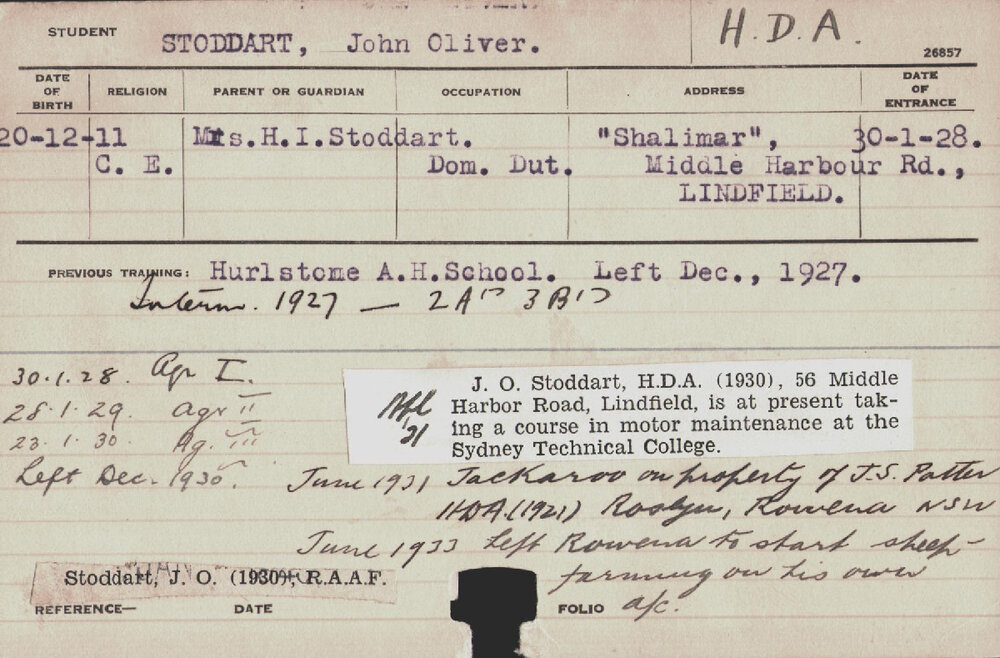 STUDENT STODDART, John Oliver. H.D.A.
26857
DATE OF BIRTH RELIGION PARENT OR GUARDIAN OCCUPATION ADDRESS DATE OF ENTRANCE
20-12-11 Mrs.H.I.Stoddart. "Shalimar", 30-1-28.
C. E. Dom. Dut. Middle Harbour Rd.,
LINDFIELD.
PREVIOUS TRAINING: Hurlstone A.H.School. Left Dec., 1927.
Interm. 1927 — 2A's 3B's
30.1.28. Agr I.
28.1.29. Agr II
23.1.30. Ag. III
Left Dec. 1930.
Apl '31
J. O. Stoddart, H.D.A. (1930), 56 Middle
Harbor Road, Lindfield, is at present tak-
ing a course in motor maintenance at the
Sydney Technical College.
June 1931 Jackaroo on property of J.S. Potter
HDA (1921) Roslyn, Rowena NSW
June 1933 Left Rowena to start sheep-
farming on his own
a/c.
Stoddart, J. O. (1930), R.A.A.F.
REFERENCE— DATE FOLIO